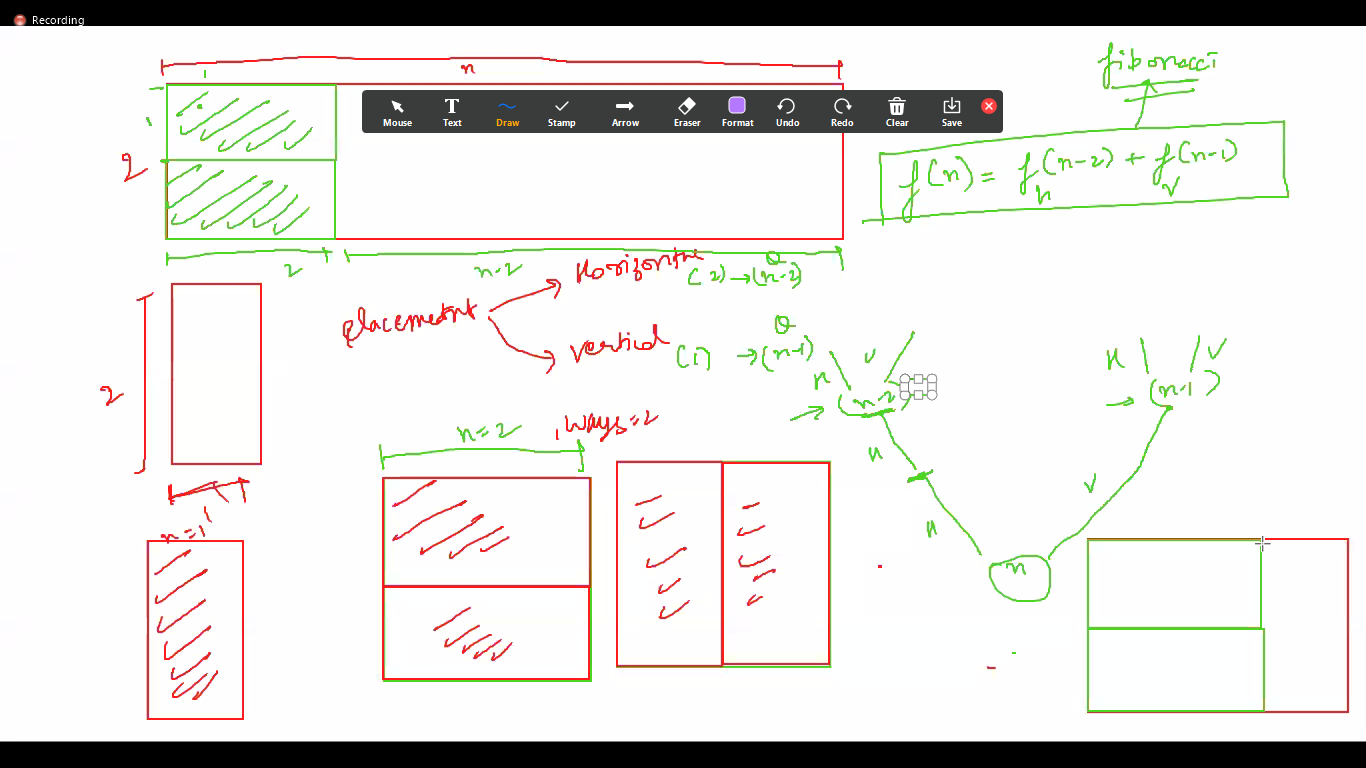 Recording
n
fibonacci
Mouse Text Draw Stamp Arrow Eraser Format Undo Redo Clear Save
1
1
2
f(n) = f(n-2) + f(n-1)
h v
2 n-2
placement
Horizontal (2) → (n-2)
vertical (1) → (n-1)
2
1
n=1
n=2 , ways=2
H V
(n-2)
H
H
H V
(n-1)
V
n